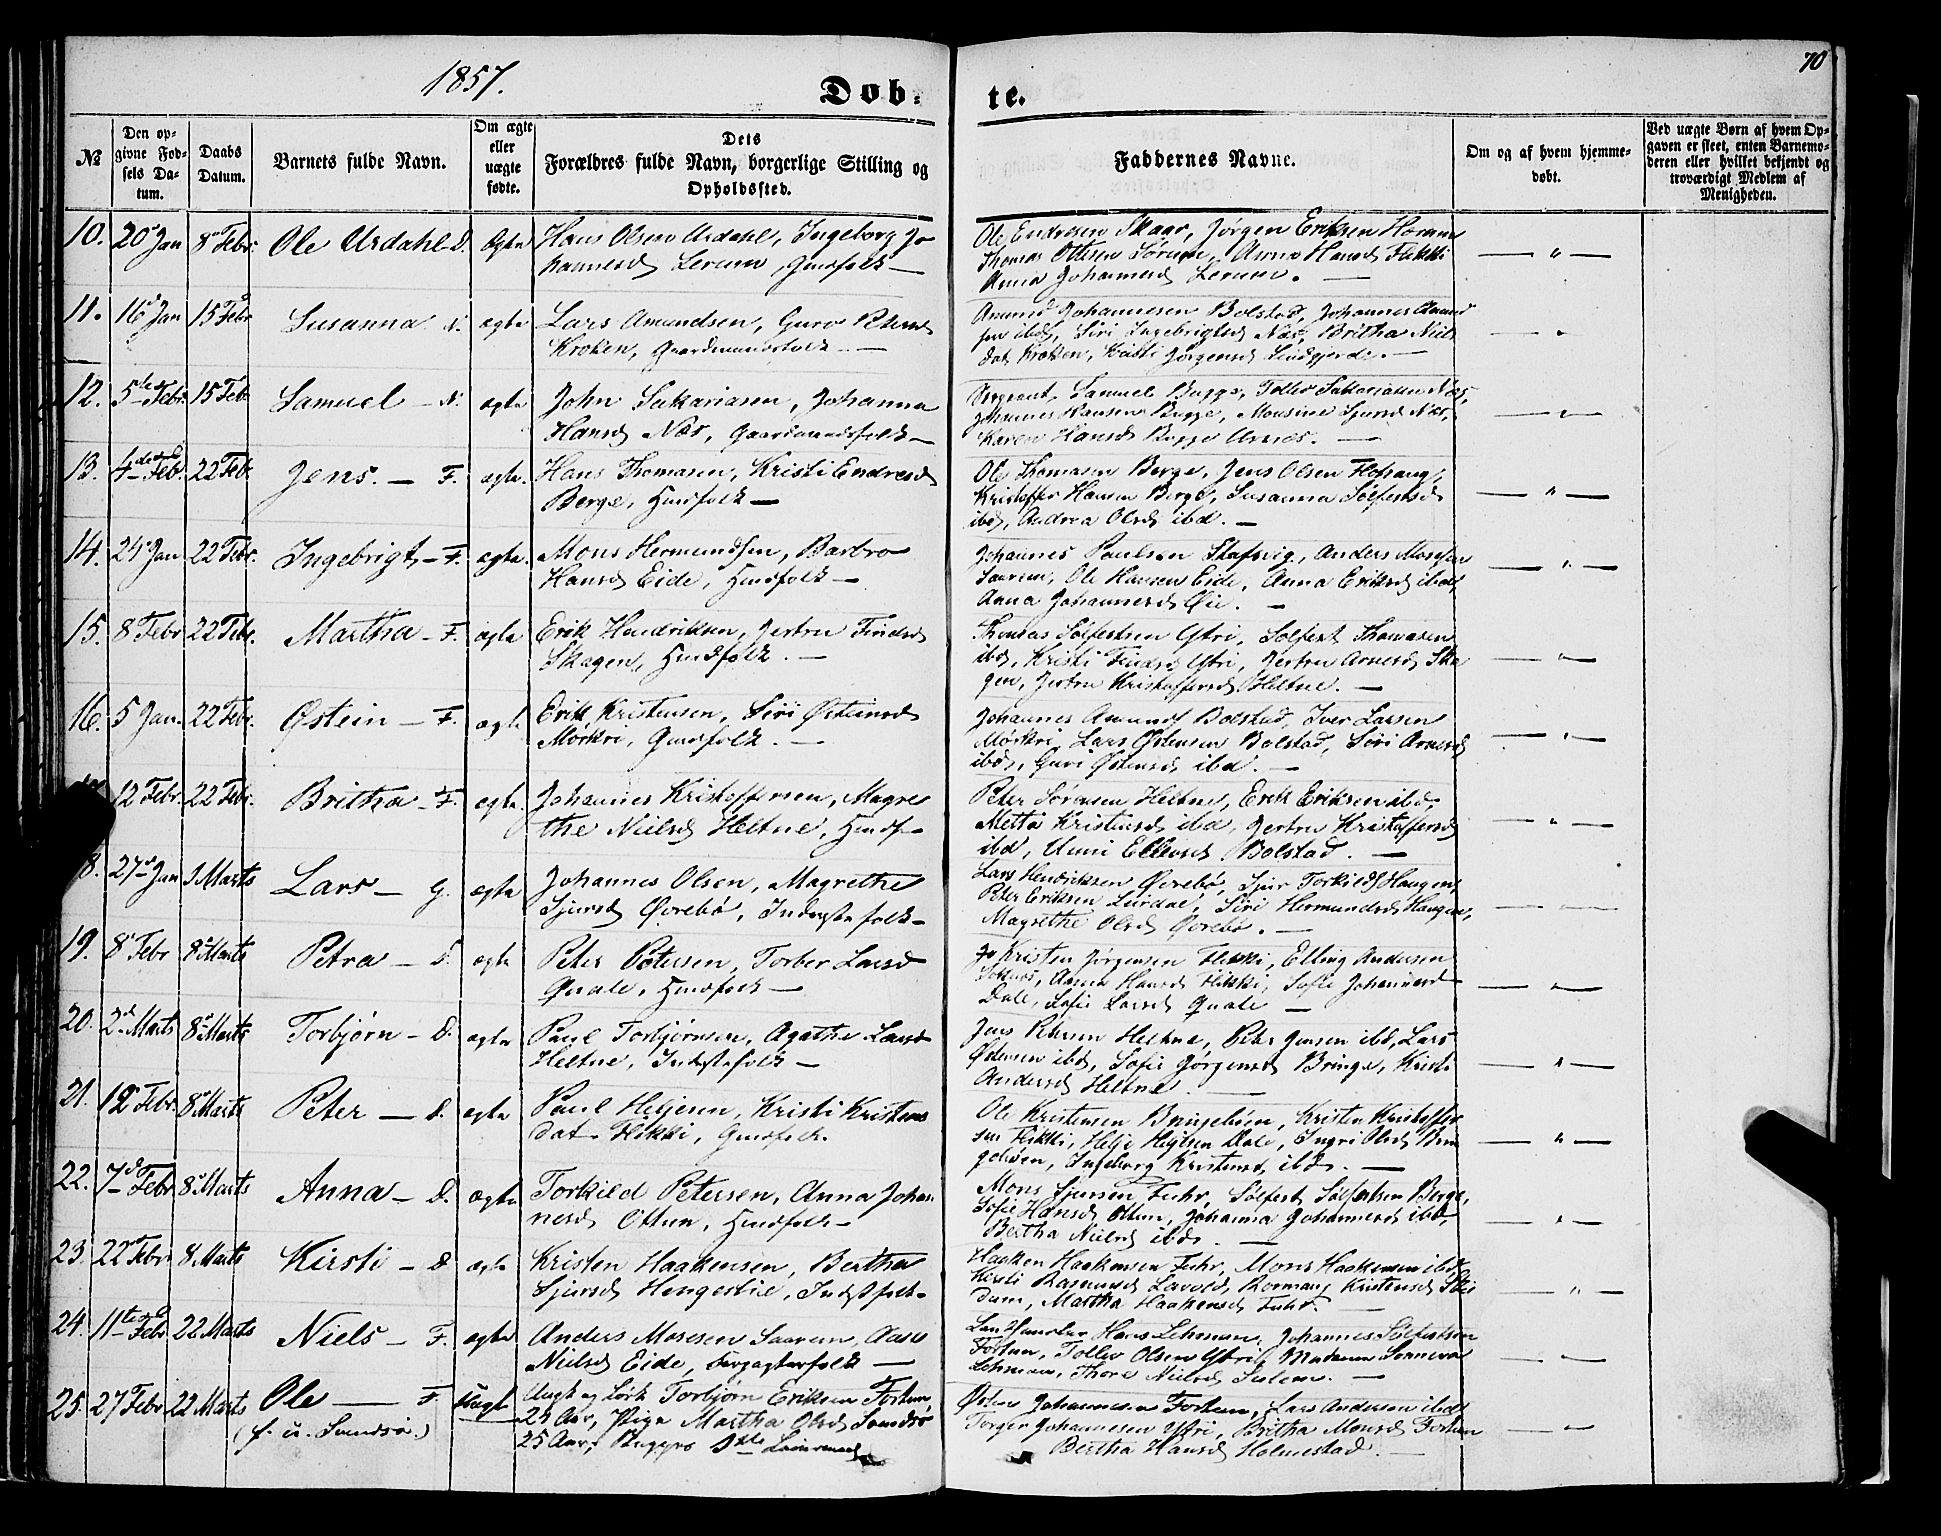 1857.
Døb-
te.
70
№
Den op-
givne Fød-
sels Da-
tum.
Daabs
Datum.
Barnets fulde Navn.
Om ægte
eller
uægte
fødte.
Dets
Forældres fulde Navn, borgerlige Stilling og
Opholdssted.
Faddernes Navne.
Om og af hvem hjemme-
døbt.
Ved uægte Børn af hvem Op-
gaven er skeet, enten Barnemo-
deren eller hvilket bekjendt og
troværdigt Medlem af
Menigheden.
10. 20 Jan 8 Febr. Ole Urdahl D. ægte Hans Olsen Urdahl, Ingeborg Jo
hannesd Lerum, Gmdfolk —
Ole Endresen Skaar, Jørgen Eriksen
Thomas Ottesen Sørum, Anna Hansd Flikki
Anna Johannesd Lerum. — — " —
11. 16 Jan 15 Febr Susanna N. ægte Lars Amundsen, Guro Petersd
Kroken, Gaardmandsfolk —
Amund Johannesen Bolstad, Johannes Amund
sen ibd, Siri Ingebrigtsd Næs, Britha Niels
dat Kroken, Kristi Jørgensd — — " —
12. 5te Febr. 15 Feb Samuel — N. ægte John Sakariasen, Johanna
Hansd Næs, Gaardmandsfolk —
Sergeant Samuel Bugge, Tollev Sakariasen Næs,
Johannes Hansen Bugge, Monsine Sjursd Næs,
Karen Hansd Bugge Arnæs. — — " —
13. 4de Feb. 22 Feb Jens. — F. ægte. Hans Thomasen, Kristi Endresd
Berge, Hmdfolk —
Ole Thomasen Berge, Jens Olsen
Kristoffer Hansen Berge, Susanna Sølfestsd
ibd, Andrea Olsd ibd. — — " —
14. 24 Jan 22 Febr. Ingebrigt — F. ægte. Mons Hermundsen, Barbro
Hansd Eide, Hmdfolk —
Johannes Paulsen, Anders Mosesen
Saarem, Ole Hansen Eide, Anna Eriksd ibd,
Anna Johannesd Øie. — — " —
15. 8 Febr 22 Febr. Martha — F. ægte Erik Hendriksen, Jertru Findsd
Skagen, Hmdfolk. —
Thomas Sølfestsen Ytri, Sølfest Thomasen
ibd, Kristi Findsd Ytri, Jertru Arnesd Ska
gen, Jertru Kristoffersd Heltne. — — " —
16. 5 Jan. 22 Febr. Østein — F. ægt. Erik Kristensen, Siri Østensd
Mørkri, Gmdfolk. —
Johannes Amunds Bolstad, Iver Larsen
Mørkri, Lars Østensen Bolstad, Siri Arnesd
ibd, Guri Østensd ibd. — — " —
12 Febr. 22 Febr. Britha — F. ægte. Johannes Kristoffersen, Magre
the Nielsd Heltne, Hmdf —
Peter Sørensen Heltne, Erik Eriksen ibd,
Metta Kristensd ibd, Jertru Kristoffersd
ibd, Unni Ellevsd Bolstad. — — " —
8. 27 Jan Marts Lars — G. ægte Johannes Olsen, Magrethe
Sjursd Øvrebø, Inderstefolk —
Lars Hendriksen Øvrebø, Sjur Torkilds Haugen,
Peter Eriksen, Siri Hermundsd Haugen,
Magrethe Olsd Øvrebø. — — " —
19. 8 Febr 8 Marts Petra — D. ægte Peter Petersen, Torber Larsd
Quale, Hmdfolk —
Kristen Jørgensen Flikki, Elling Andersen
Anna Hansd Flikki, Sofie Johannesd
Dale, Sofie Larsd Quale — — " —
20. 2d Marts 8 Marts Torbjørn — D. ægte Paul Torbjørnsen, Agathe Larsd
Heltne, Indstefolk —
Jens Petersen Heltne, Peter Jensen ibd, Lars
Østensen ibd, Sofie Jørgensd Bringe, Kristi
Andersd Heltne — — " —
21. 12 Febr. 8 Marts Peter — D. ægte Paul Heljesen, Kristi Kristens
dat. Flikki, Gmdfolk.
Ole Kristensen Bringebøen, Kristen Kristoffer
sen Flikki, Helje Heljesen Dale, Ingri Olsd Brin
gebøen, Ingeborg Kristensd ibd. — — " —
22. 7d Febr. 8 Marts Anna — D. ægte Torkild Petersen, Anna Johan
nesd Ottum, Hmdfolk —
Mons Sjursen Fuhr, Sølfest Sølfestsen Berge,
Sofie Hansd Ottum, Johanna Johannesd ibd,
Bertha Nielsd ibd. — — " —
23. 22 Febr. 8 Marts Kirsti — D ægte Kristen Haakensen, Bertha
Sjursd Hengestie, Indstfolk —
Haaken Haakensen Fuhr, Mons Haakensen ibd,
Kirsti Rasmusd, Kristensd Ski
dum, Martha Haakensd Fuhr. — — " —
24. 11te Febr 22 Marts Niels — F. ægte Anders Mosesen Saarem, Aase
Nielsd Eide, Forpagterfolk —
Landhandler Hans Lehmann, Johannes Sølfestsen
Fortun, Tollev Olsen Ytri, Madame Sunneva
Lehmann, Thore Nielsd — — " —
25. 27 Febr 22 Marts Ole — F. uægt Ungk og Torbjørn Eriksen Fortun,
24 Aar, Pige Martha Olsd Svendsø
(f. u. Svendsø.)
25 Aar, Begges 1ste Leiermaal
Østen Johannesen Fortun, Lars Andersen ibd
Torger Johannesen Ytri, Britha Monsd Fortun
Bertha Hansd Holmestad. — — " —